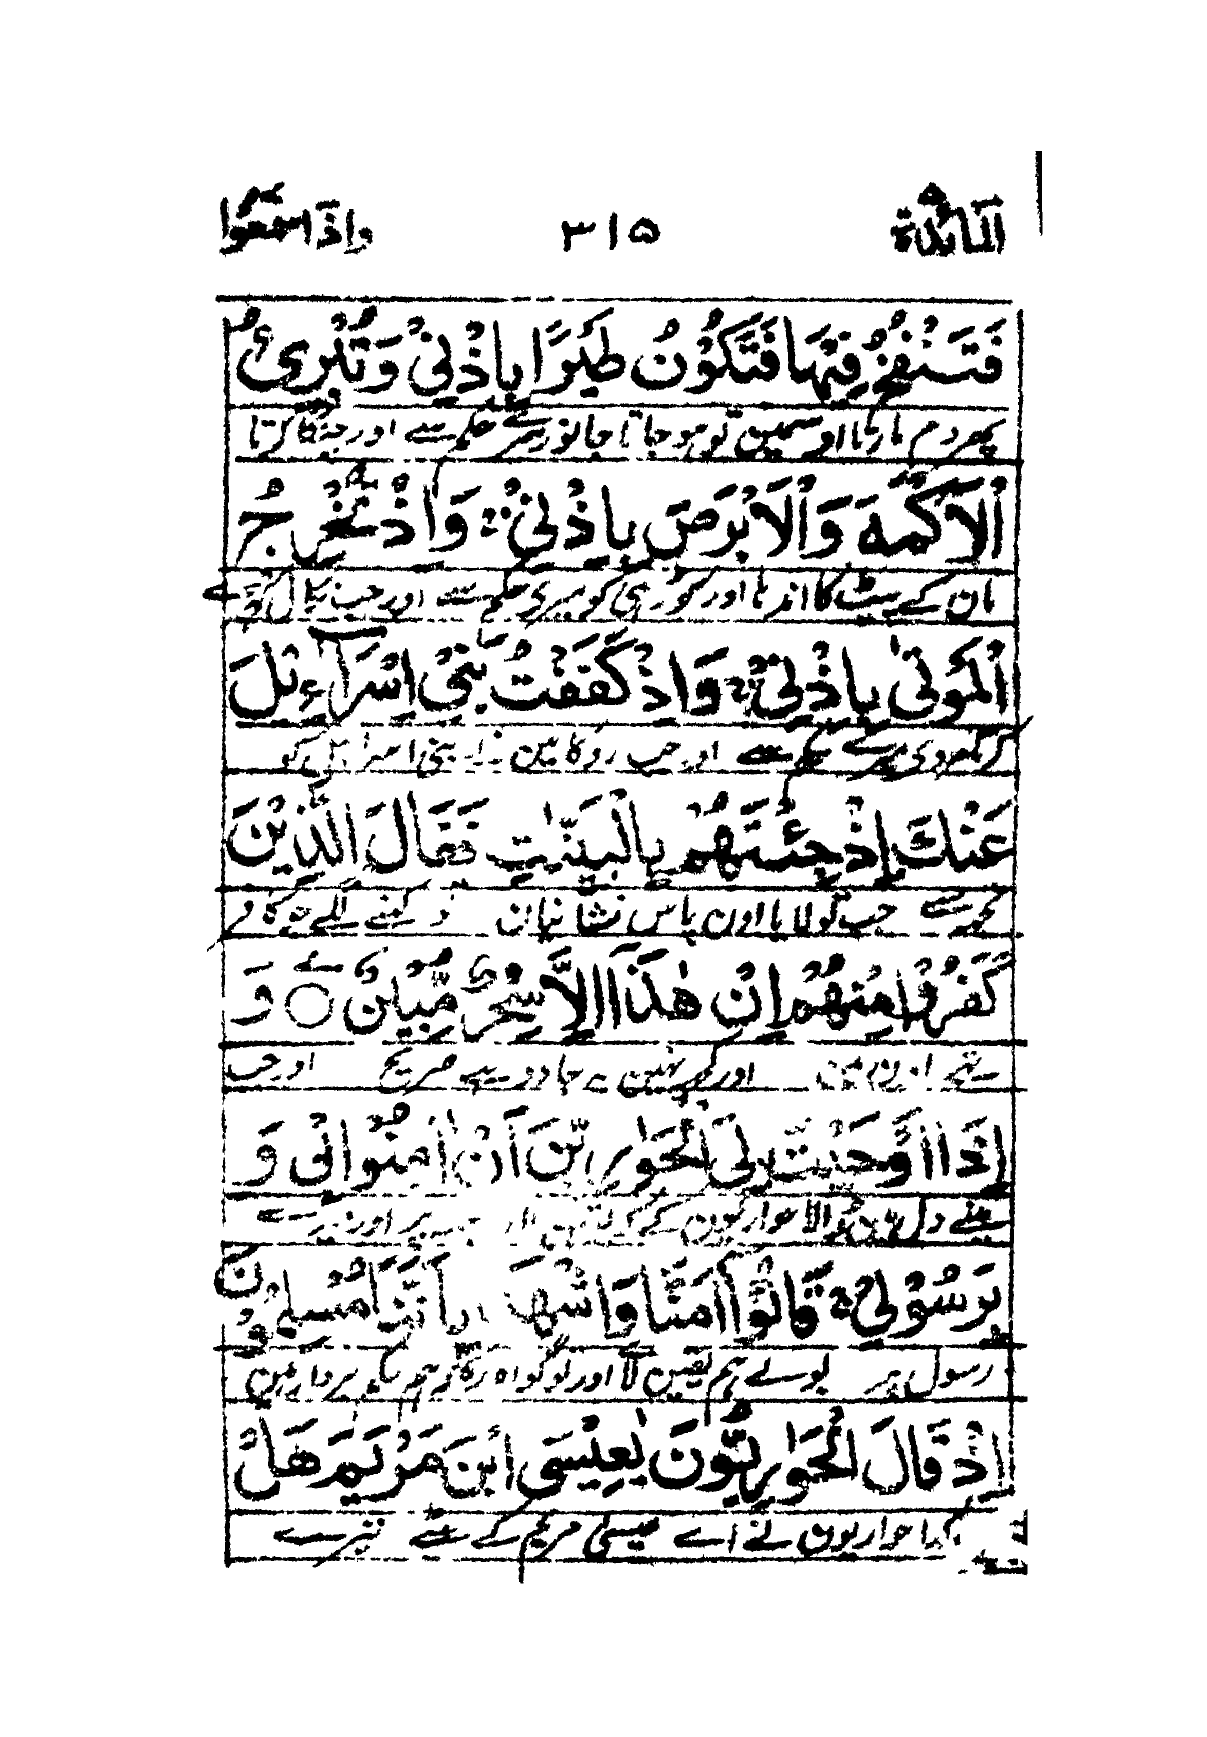 المائدة ۵ ۳۱۵ واذا سمعوا
فَتَنْفُخُ فِيْهَا فَتَكُوْنُ طَيْرًا بِاِذْنِيْ وَتُبْرِئُ
پھر دم مارتا اوسمین تو ہو جاتا جانور میرے حکم سے اور چنگا کرتا
الْاَكْمَهَ وَالْاَبْرَصَ بِاِذْنِيْ ۚ وَاِذْ تُخْرِجُ
مان کے پیٹ کا اندہا اور کوڑہی کو میرے حکم سے اور جب نکال کھڑے
الْمَوْتٰى بِاِذْنِيْ ۚ وَاِذْ كَفَفْتُ بَنِيْ اِسْرَآءِيْلَ
کرتا مردی میرے حکم سے اور جب روکا مین نے بنی اسرائیل کو
عَنْكَ اِذْ جِئْتَهُمْ بِالْبَيِّنٰتِ فَقَالَ الَّذِيْنَ
تجھ سے جب تو لایا اون پاس نشانیان تو کہنے لگے جو کافر
كَفَرُوْا مِنْهُمْ اِنْ هٰذَآ اِلَّا سِحْرٌ مُّبِيْنٌ ○ وَ
تھے اون مین اور کچھ نہین یہ جادو ہے صریح اور جب
اِذْ اَوْحَيْتُ اِلَى الْحَوَارِيّٖنَ اَنْ اٰمِنُوْا بِيْ وَ
مینے دل مین ڈالا حواریون کے کہ یقین لاؤ مجھ پر اور میرے
بِرَسُوْلِيْ ۚ قَالُوْٓا اٰمَنَّا وَاشْهَدْ بِاَنَّنَا مُسْلِمُوْنَ
رسول پر بولے ہم یقین لائے اور تو گواہ رہ کہ ہم حکم بردار ہین
اِذْ قَالَ الْحَوَارِيُّوْنَ يٰعِيْسَى ابْنَ مَرْيَمَ هَلْ
جب کہا حواریون نے اے عیسیٰ مریم کے بیٹے تیرے